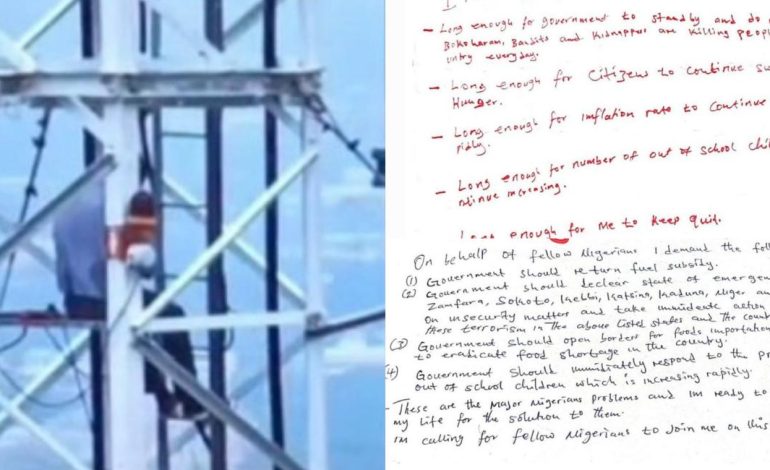 - Long enough for government to standby and do
Bokoharam, Bandits and Kidnappers are Killing people
untry everyday.
- Long enough for Citizens to continue
Hunger.
- Long enough for inflation rate to continue
pidly.
- Long enough for number of out of school
ntinue increasing.
enough for me to keep quit.
On behalf of fellow Nigerians I demand the
(1) Government should return fuel subsidy.
(2) Government should declear state of
Zamfara, Sokoto, Kebbi, Katsina, Kaduna, Niger
on insecurity matters and take immidiate action
these terrorism in the above listed states and the
(3) Government should open borders for foods importation
to eradicate food shortage in the country.
Government should immidiately respond to the
out of school children which is increasing rapidly.
- These are the major Nigerians problems and im ready to
my life for the solution to them.
im calling for fellow Nigerians to join me on this